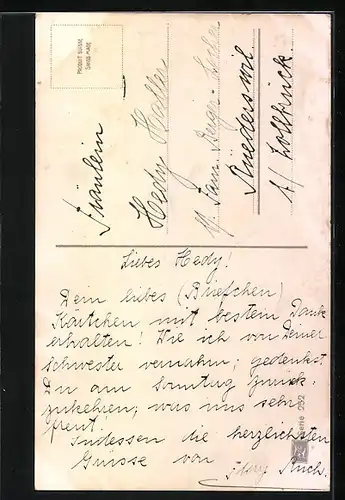 PRODUIT SUISSE
SWISS MADE
Fräulein
Hedy Haller
p. Fam. Berger-
Rüederswil
b/ Zollbrück.
Liebes Hedy!
Dein liebes (Briefchen)
Kärtchen mit bestem Dank
erhalten! Wie ich von Deiner
Schwester vernahm, gedenkst
Du am Sonntag zurück-
zukehren, was uns sehr
freut.
Indessen die herzlichsten
Grüsse von
Ruch.
Serie 252